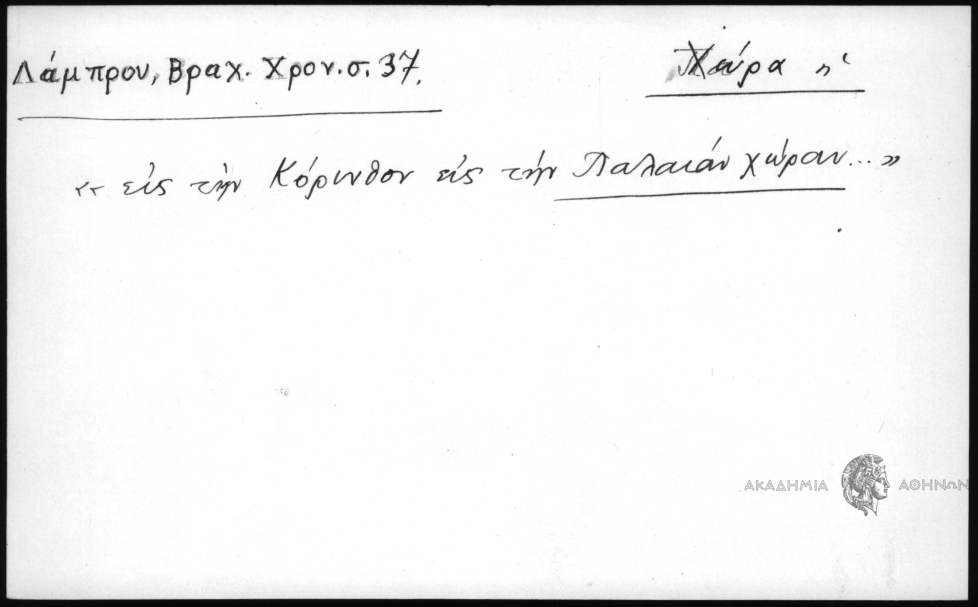 Λάμπρου, Βραχ. Χρον. σ. 37.
Χώρα ἡ
« εἰς τὴν Κόρινθον εἰς τὴν Παλαιὰν χώραν... »
ΑΚΑΔΗΜΙΑ ΑΘΗΝΩΝ